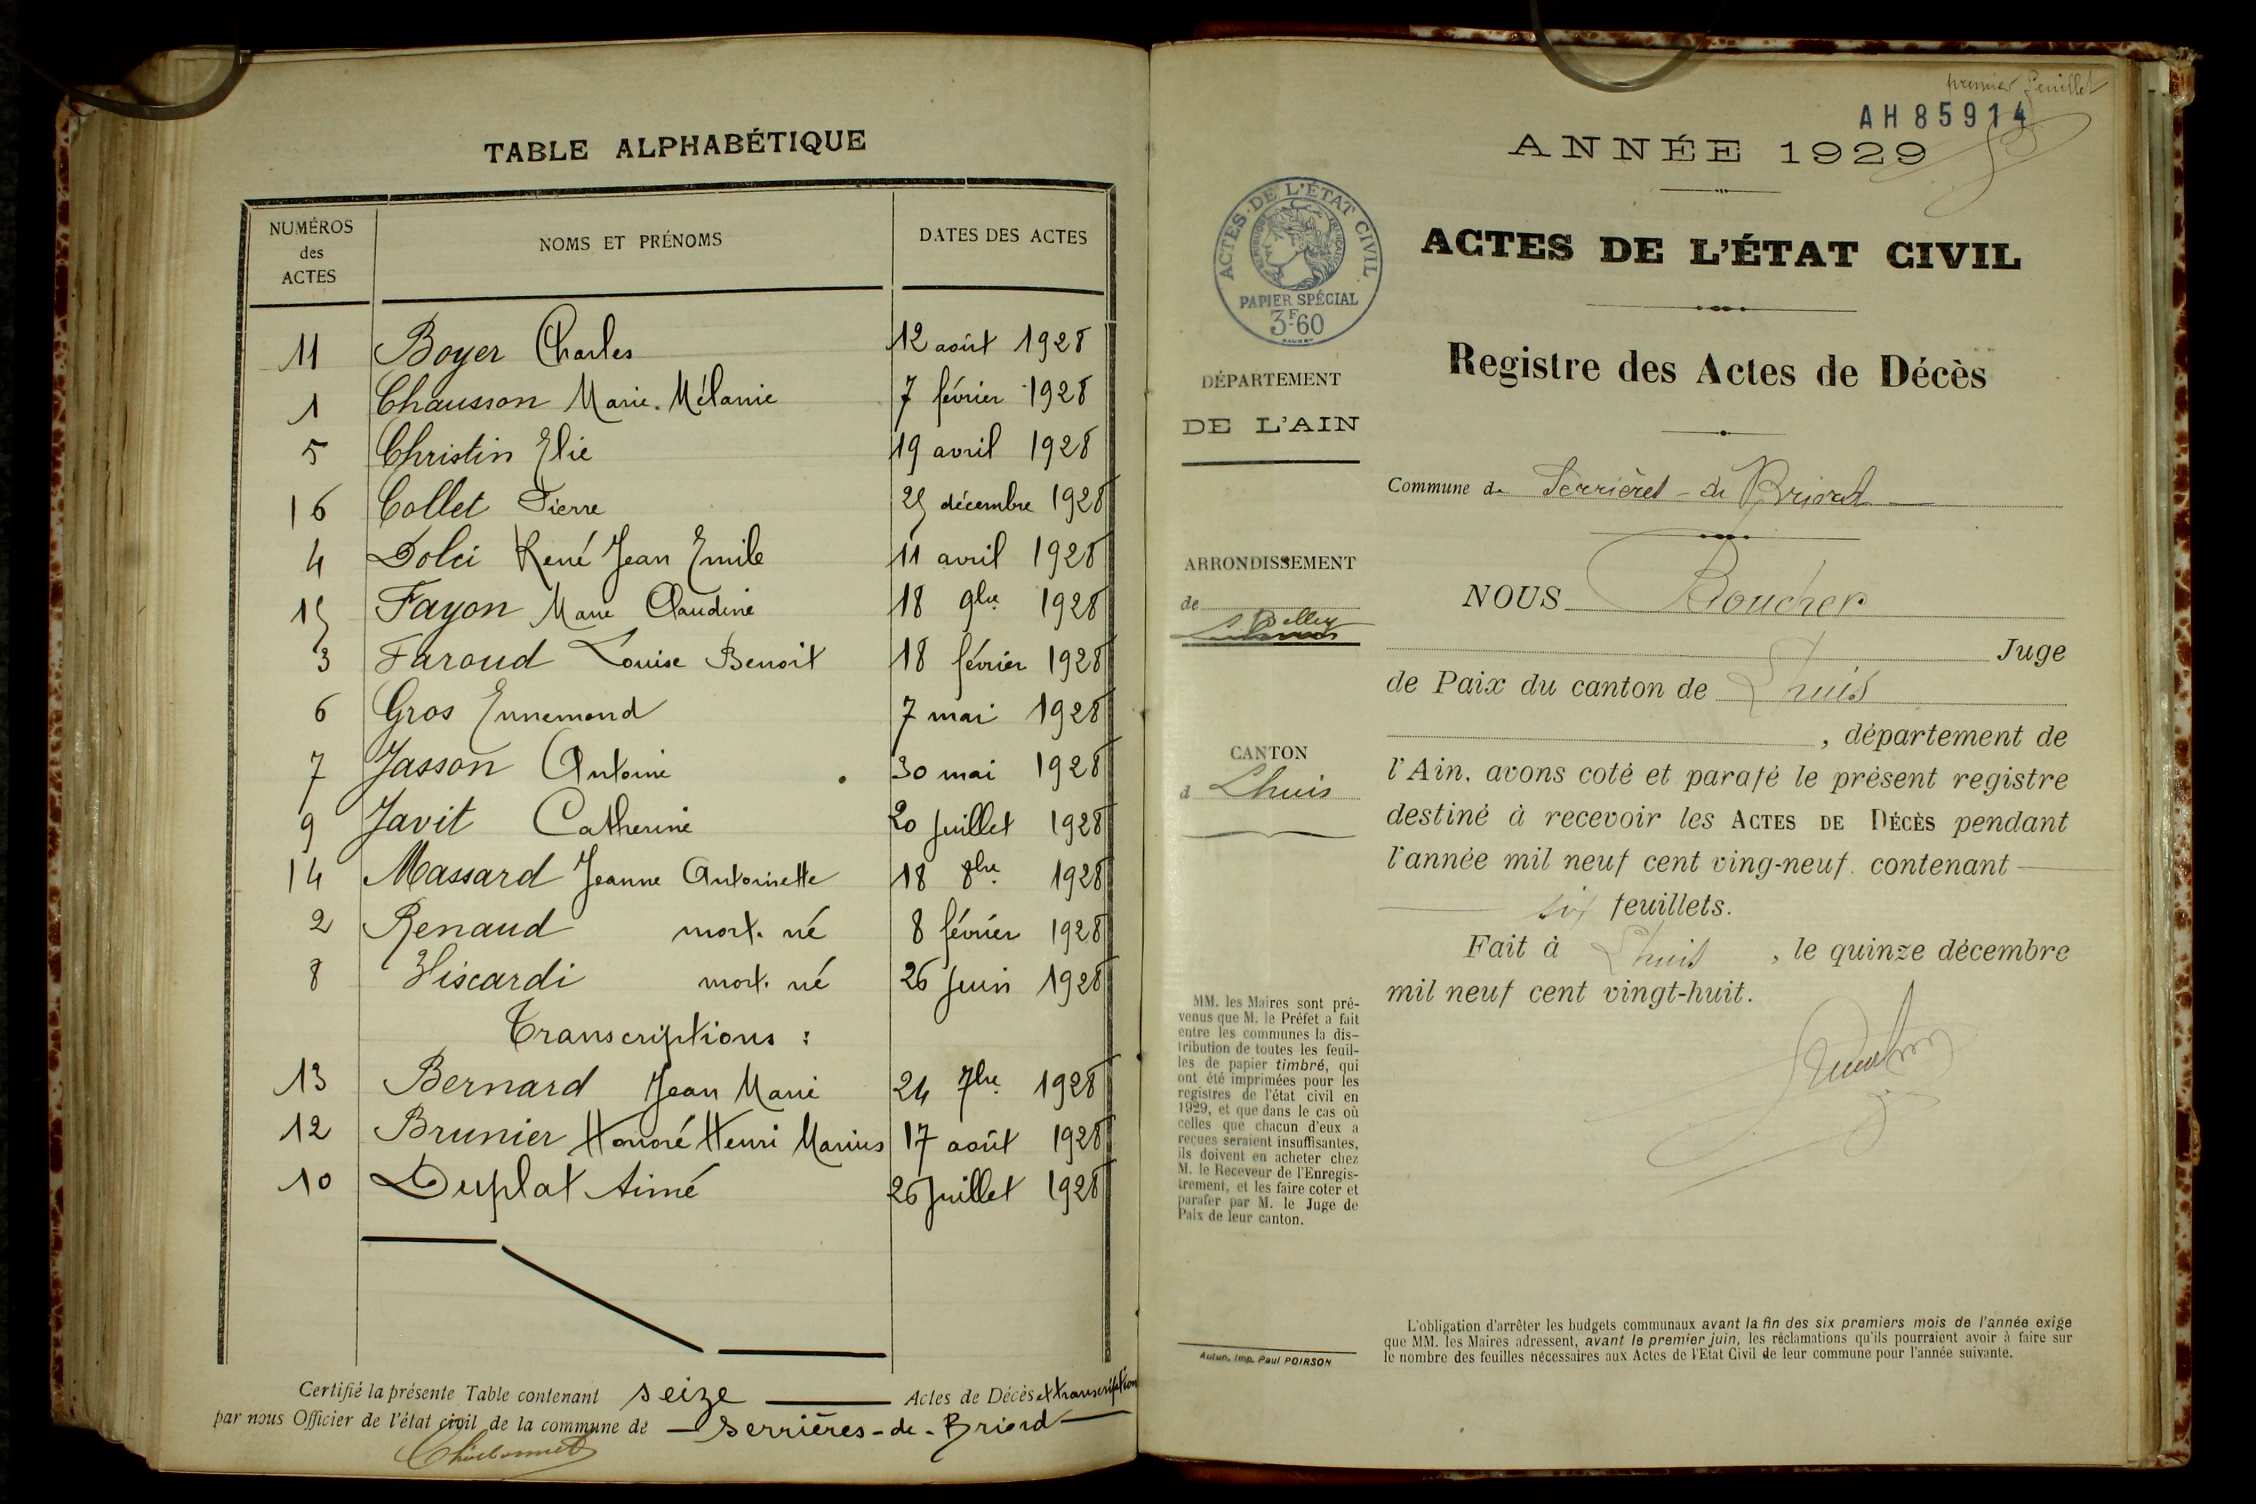 TABLE ALPHABÉTIQUE
NUMÉROS des ACTES
NOMS ET PRÉNOMS
DATES DES ACTES
11 Boyer Charles 12 août 1928
1 Chausson Marie-Mélanie 7 février 1928
5 Christin Elie 19 avril 1928
16 Collet Pierre 25 décembre 1928
4 Dolci René Jean Emile 11 avril 1928
15 Fayon Marie Claudine 18 9bre 1928
3 Faroud Louise Benoit 18 février 1928
6 Gros Ennemond 7 mai 1928
7 Jasson Antoine 30 mai 1928
9 Javit Catherine 20 Juillet 1928
14 Massard Jeanne Antoinette 18 8bre 1928
2 Renaud mort. né 8 février 1928
8 Viscardi mort. né 26 Juin 1928
Transcriptions :
13 Bernard Jean Marie 24 7bre 1928
12 Brunier Honoré Henri Marius 17 août 1928
10 Duplat Aimé 26 Juillet 1928
Certifié la présente Table contenant seize Actes de Décès et transcription
par nous Officier de l'état civil de la commune de Serrières-de-Briord
premier feuillet
AH85914
ANNÉE 1929
ACTES DE L'ÉTAT CIVIL
PAPIER SPÉCIAL
3F60
ACTES DE L'ÉTAT CIVIL
Registre des Actes de Décès
DÉPARTEMENT
DE L'AIN
Commune de Serrières-de Briord
ARRONDISSEMENT
de Belley
CANTON
d Lhuis
NOUS Boucher
Juge
de Paix du canton de Lhuis
, département de
l'Ain, avons coté et parafé le présent registre
destiné à recevoir les ACTES DE DÉCÈS pendant
l'année mil neuf cent ving-neuf. contenant
six feuillets.
Fait à Lhuis , le quinze décembre
mil neuf cent vingt-huit.
MM. les Maires sont pré-
venus que M. le Préfet a fait
entre les communes la dis-
tribution de toutes les feuil-
les de papier timbré, qui
ont été imprimées pour les
registres de l'état civil en
1929, et que dans le cas où
celles que chacun d'eux a
reçues seraient insuffisantes,
ils doivent en acheter chez
M. le Receveur de l'Enregis-
trement, et les faire coter et
parafer par M. le Juge de
Paix de leur canton.
Autun, Imp. Paul POIRSON
L'obligation d'arrêter les budgets communaux avant la fin des six premiers mois de l'année exige
que MM. les Maires adressent, avant le premier juin, les réclamations qu'ils pourraient avoir à faire sur
le nombre des feuilles nécessaires aux Actes de l'Etat Civil de leur commune pour l'année suivante.